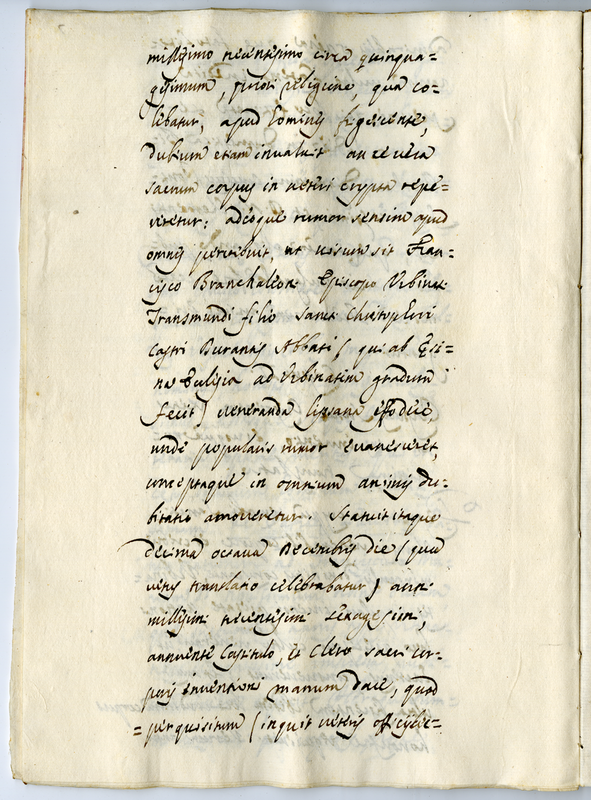 millesimo trecentesimo circa quinqua=
gesimum, priori religione, qua co=
lebatur, apud homines frigescente,
dubium etiam invaluit an re vera
sacrum corpus in veteri crypta repe=
riretur; adeoque rumor sensim apud
omnes percrebuit, ut visum sit Fran=
cisco Branchaleoni Episcopo Urbinat.
Transmundi filio Sancti Christophori
Castri Durantis Abbati ( qui ab Esi=
na Ecclesia ad Urbinatem gradum
fecit ) veneranda lipsana effodere,
unde popularis rumor evanesceret,
conceptaque in omnium animis du=
bitatio amoveretur. Statuit itaque
decima octava Decembris die ( qua
vetus translatio celebrabatur ) anni
millesimi trecentesimi sexagesimi,
annuente Capitulo, et Clero sacri cor=
poris inventioni manum dare, quod
= perquisitum ( inquit veteris officij le=